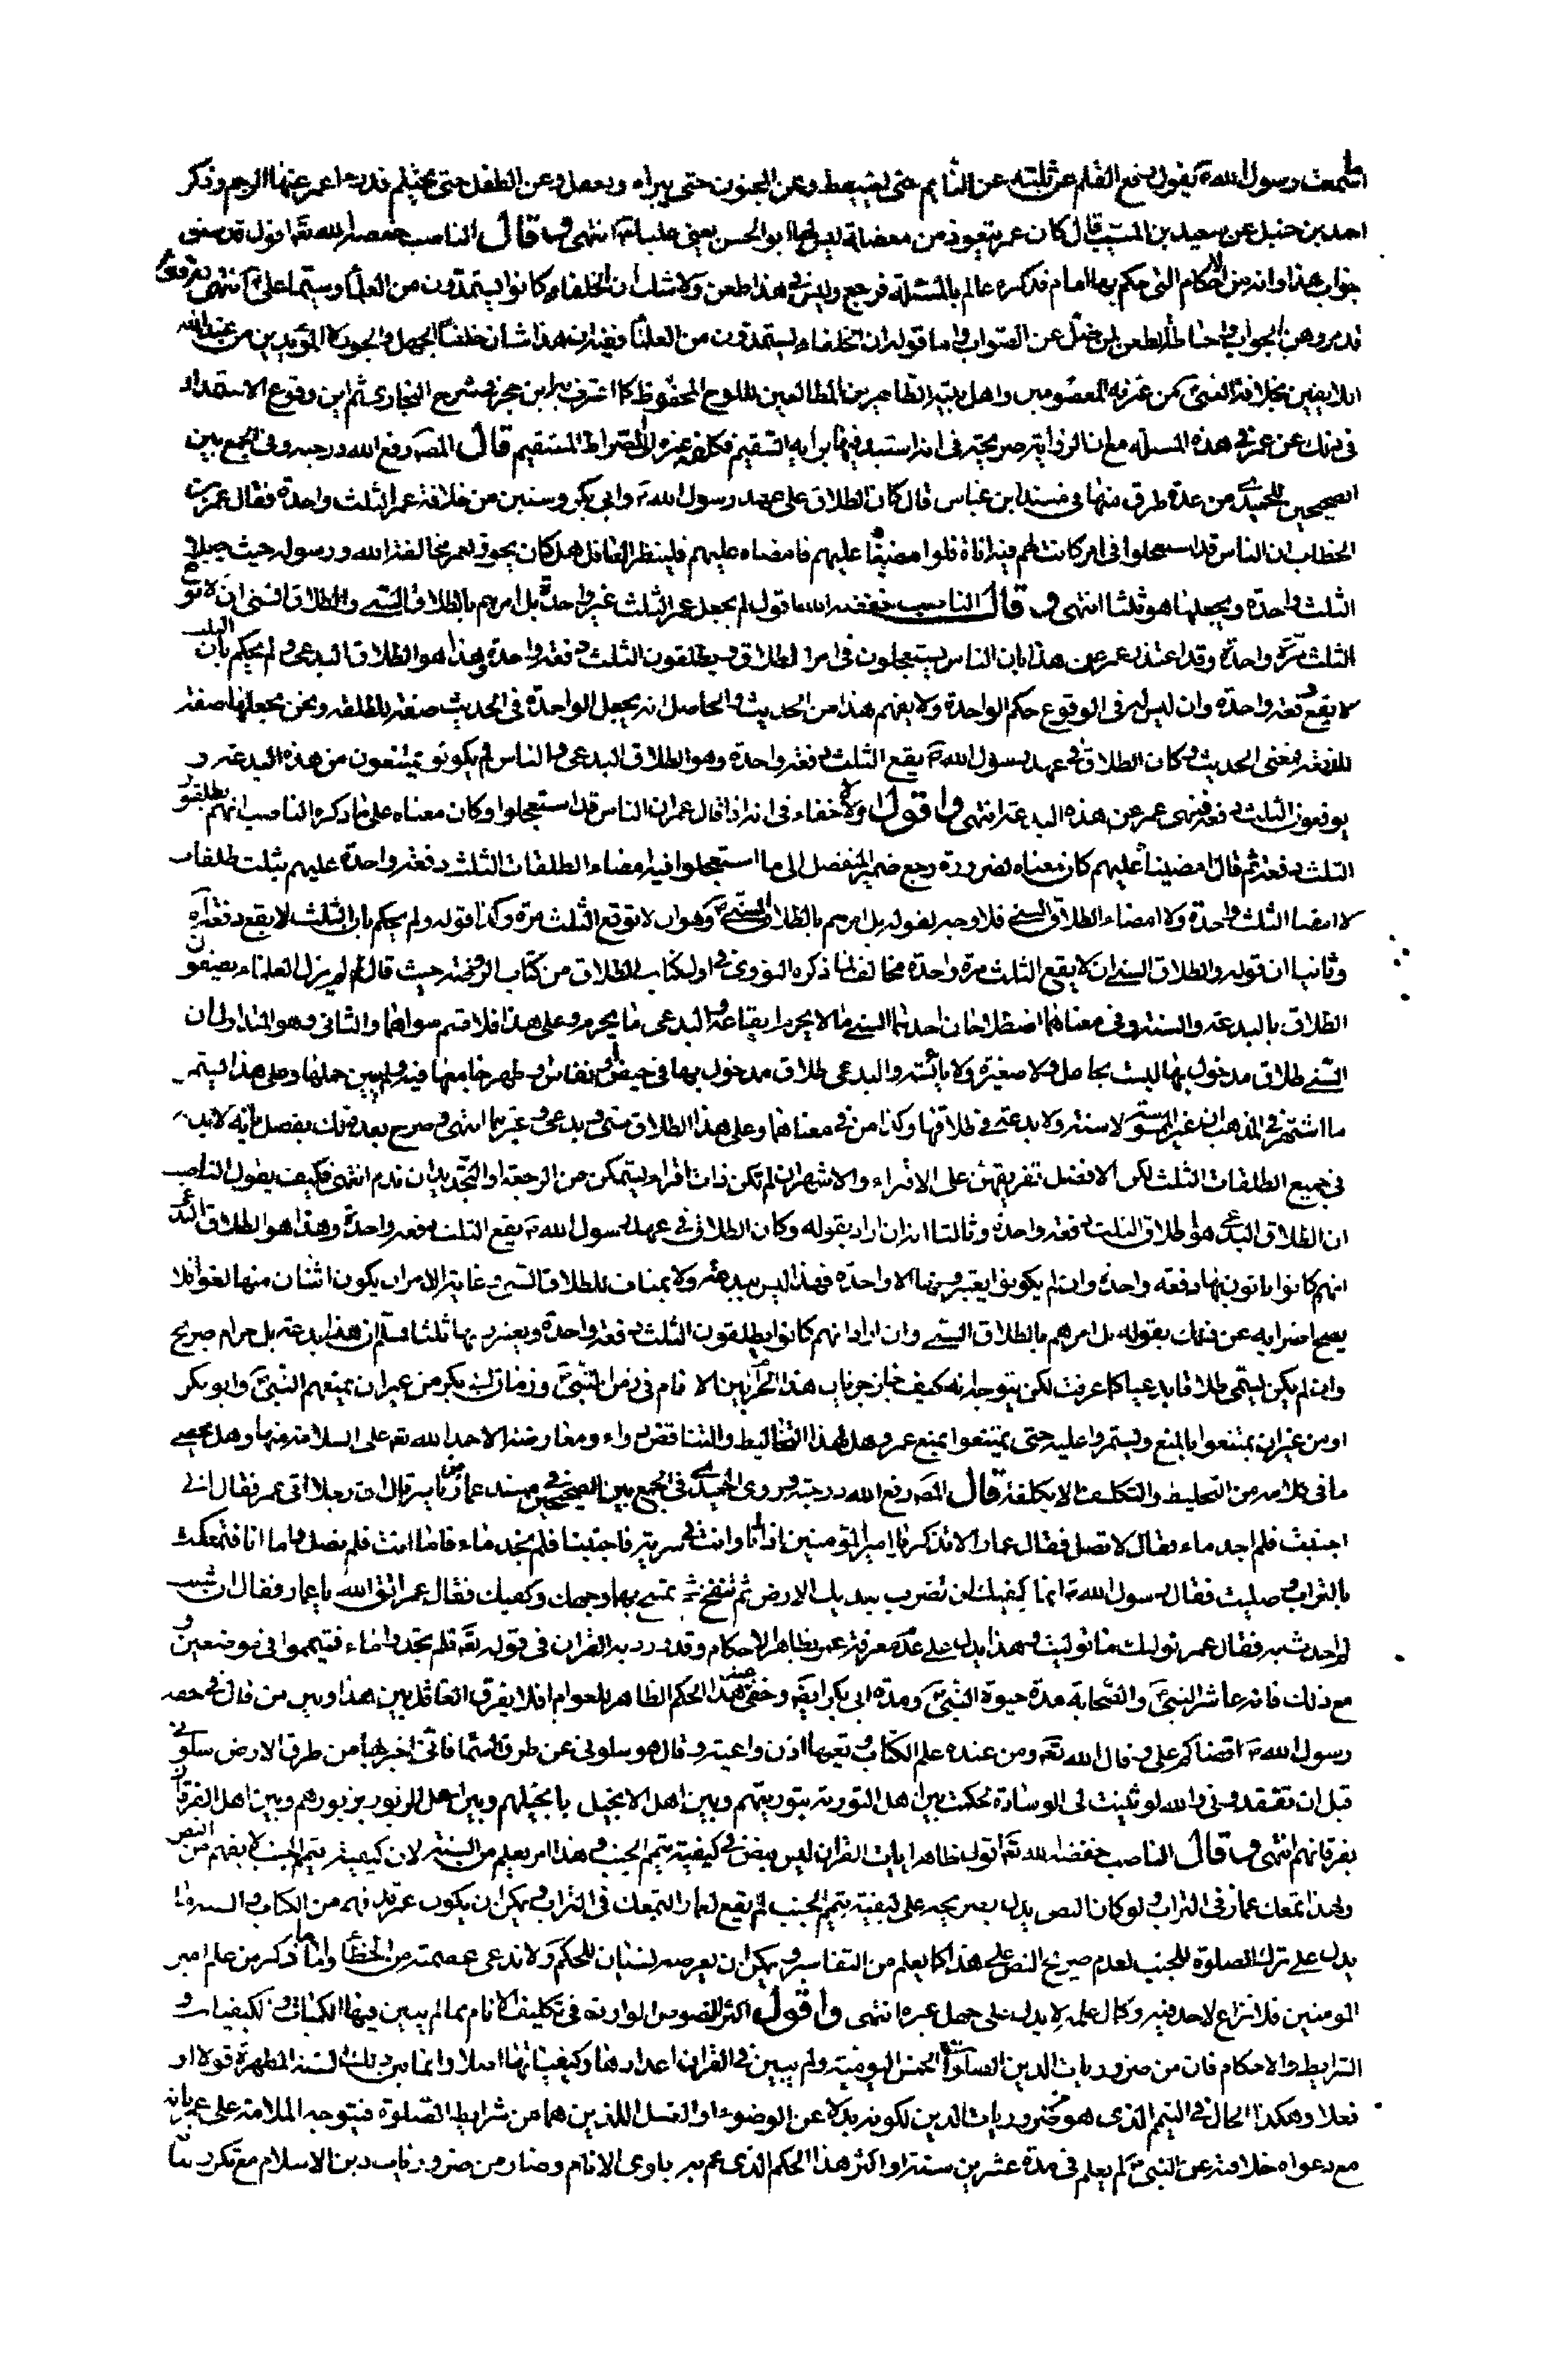 اما سمعت رسول الله ص يقول رفع القلم عن ثلثة عن النائم حتى يستيقظ وعن المجنون حتى يبراه ويعقل وعن الطفل حتى يحتلم فدرا عمر عنها الرجم وذكر
احمد بن حنبل عن سعيد بن المسيب قال كان عمر يتعوذ من معضلة ليس لها ابو الحسن يعني عليا ع انتهى وقال الناصب خفضه الله تعه اقول قد سبق
جواب هذا وانه من الاحكام التي حكم بها امام فذكره عالم بالمسئلة فرجع وليس في هذا طعن ولا شك ان الخلفاء كانوا يستمدون من العلماء وسيما على ع انتهى
قد مر وهن الجواب واما قوله ان الخلفاء يستمدون من العلماء ففيه ان هذا شان خلفاء الجهل والجور لا المؤيدين من عند الله
اللايقين بخلافة النبي ص من عترته المعصومين واهل بيته الطاهرين المطالعين للوح المحفوظ كما اعترف به ابن حجر في شرح البخاري ثم اين وقوع الاستمداد
في ذلك عن عمر في هذه المسئلة مع ان الرواية صريحة في انه استبد فيها برايه السقيم فكلفه غيره الى الصراط المستقيم قال المصه رفع الله درجته وفي الجمع بين
الصحيحين للحميدي من عدة طرق منها في مسند ابن عباس قال كان الطلاق على عهد رسول الله ص وابي بكر وسنين من خلافة عمر الثلث واحدة فقال عمر بن
الخطاب ان الناس قد استعجلوا في امر كانت لهم فيه اناة فلو امضيناه عليهم فامضاه عليهم فلينظر العاقل هل كان يجوز لعمر مخالفة الله ورسوله حيث جعلا
الثلث واحدة ويجعلها هو ثلثا انتهى وقال الناصب خفضه الله اقول لم يجعل عمر الثلث غير واحدة بل امرهم بالطلاق السني والطلاق السني ان لا توقع
الثلث مرة واحدة وقد اعتذر عمر عن هذا بان الناس يستعجلون في امر الطلاق ويطلقون الثلث دفعة واحدة وهذا هو الطلاق البدعي ولم يحكم بان الثلث
لا يقع دفعة واحدة وان ليس له في الوقوع حكم الواحدة ولا يفهم هذا من الحديث والحاصل انه يجعل الواحدة في الحديث صفة للطلقة ونحن نجعلها صفة
للدفعة فمعنى الحديث وكان الطلاق في عهد رسول الله ص يقع الثلث دفعة واحدة وهو الطلاق البدعي والناس لم يكونوا يمتنعون من هذه البدعة و
يوقعون الثلث دفعة فنهى عمر عن هذه البدعة انتهى واقول اولا لا خفاء في انه اذا قال عمر ان الناس قد استعجلوا وكان معناه على ما ذكره الناصب انهم يطلقون
الثلث دفعة ثم قال امضينا عليهم كان معناه لضرورة رجع ضمير المنفصل الى ما استعجلوا فيه امضاء الطلقات الثلث دفعة واحدة عليهم بثلث طلقات
لا امضا الثلث واحدة ولا امضاء الطلاق السني فلا وجه لقوله بل امرهم بالطلاق السني وهو ان لا توقع الثلث مرة وكذا قوله ولم يحكم بان الثلث لا يقع دفعة آه
وثانيا ان قوله والطلاق السني ان لا يقع الثلث مرة واحدة مخالف لما ذكره النووي في اول كتاب الطلاق من كتاب الروضة حيث قال لم يزل العلماء يصفون
الطلاق بالبدعة والسنة وفي معناهما اصطلاحان احدهما السني ما لا يحرم ايقاعه والبدعي ما يحرم وعلى هذا فلا قسم سواهما والثاني وهو المتداول ان
السني طلاق مدخول بها ليست بحامل ولا صغيرة ولا يائسة والبدعي طلاق مدخول بها في حيض او نفاس او طهر جامعها فيه ولم يبين حملها وعلى هذا يستمر
ما اشتهر في المذهب ان غير الممسوسة لا سنة ولا بدعة في طلاقها وكذا من في معناها وعلى هذا الطلاق سني وبدعي وغيرهما انتهى وصرح بعد ذلك بفصل بانه لا بدعة
في جميع الطلقات الثلث لكن الافضل تفريقهن على الاقراء والاشهر ان لم تكن ذات اقراء ليتمكن من الرجعة او التجديد ان ندم انتهى فكيف يقول الناصب
ان الطلاق البدعي هو طلاق الثلث دفعة واحدة وثالثا انه ان اراد بقوله وكان الطلاق في عهد رسول الله ص يقع الثلث دفعة واحدة وهذا هو الطلاق البدعي
انهم كانوا ياتون بها دفعة واحدة وان لم يكونوا يعتبرون منها الا واحدة فهذا ليس ببدعة ولا بمناف للطلاق السني غاية الامر ان يكون اثنان منها لغوا فلا
يصح اضرابه عن ذلك بقوله بل امرهم بالطلاق السني وان اراد انهم كانوا يطلقون الثلث دفعة واحدة ويعتبر بها ثلثا فسلم ان هذا بدعة بل حرام صريح
وان لم يكن يسمى طلاقا بدعيا كما عرفت لكن يتوجه انه كيف جاز جريان هذا الحرام بين الانام في زمن النبي ص وزمان ابي بكر من غير ان يمنعهم النبي ص وابو بكر
او من غير ان يمتنعوا بالمنع ويستمروا عليه حتى يمتنعوا بمنع عمر وهل لهذا التخاليط والتناقض دواء ومعارضة الا حمد الله تعه على السلامة منها وهل يحصى
ما في كلامه من التخليط والتكلف الا بكلفة قال المصه رفع الله درجته وروى الحميدي في الجمع بين الصحيحين في مسند عمار بن ياسر قال ان رجلا اتى عمر فقال اني
اجنبت فلم اجد ماء فقال لا تصل فقال عمار الا تذكر يا امير المؤمنين اذ انا وانت في سرية فاجنبنا فلم نجد ماء فاما انت فلم تصل واما انا فتمعكت
بالتراب وصليت فقال رسول الله ص انما يكفيك ان تضرب بيديك الارض ثم تنفخ ثم تمسح بهما وجهك وكفيك فقال عمر اتق الله يا عمار فقال ان شئت
لم احدث به فقال عمر نوليك ما توليت وهذا يدل على عدم معرفة عمر بظاهر الاحكام وقد ورد به القران في قوله تعه فلم تجدوا ماء فتيمموا في موضعين و
مع ذلك فانه عاشر النبي ص والصحابة مدة حيوة النبي ص ومدة ابي بكر ايضه وخفي عنه هذا الحكم الظاهر للعوام افلا يفرق العاقل بين هذا وبين من قال في حقه
رسول الله ص اقضاكم علي وقال الله تعه ومن عنده علم الكتاب وتعيها اذن واعية وقال هو سلوني عن طرق السماء فاني اخبر بها من طرق الارض سلوني
قبل ان تفقدوني والله لو ثنيت لي الوسادة لحكمت بين اهل التورية بتوريتهم وبين اهل الانجيل بانجيلهم وبين اهل الزبور بزبورهم وبين اهل الفرقان
بفرقانهم انتهى وقال الناصب خفضه الله تعه اقول ظاهر ايات القران ليس بنص في كيفية تيمم الجنب وهذا امر يعلم من السنة لان كيفية تيمم الجنب لا يفهم من النص
ولهذا تمعك عمار في التراب ولو كان النص يدل بصريحه على كيفية تيمم الجنب لم يقع لعمار التمعك في التراب ويمكن ان يكون عمر قد فهم من الكتاب والسنة ما
يدل على ترك الصلوة للجنب لعدم صريح النص على هذا كما يعلم من التفاسير ويمكن ان يعرضه نسيان للحكم ولا ندعي عصمته من الخطأ واما ما ذكر من علم امير
المومنين فلا نزاع لاحد فيه وكمال علمه لا يدل على جهل غيره انتهى واقول اكثر النصوص الواردة في تكليف الانام بما لم يبين فيها الكميات والكيفيات و
الترابيط والاحكام فان من ضروريات الدين الصلوات الخمس اليومية ولم يبين في القران اعدادها وكيفياتها اصلا وانما بين ذلك السنة المطهرة قولا او
فعلا وهكذا الحال في التيمم الذي هو من ضروريات الدين لكونه بدلا عن الوضوء او الغسل اللذين هما من شرايط الصلوة فيتوجه الملامة على عمر بانه
مع دعواه خلافة عن النبي ص لم يعلم في مدة عشرين سنة او اكثر هذا الحكم الذي عم به بلوى الانام وصار من ضروريات دين الاسلام مع تكرر